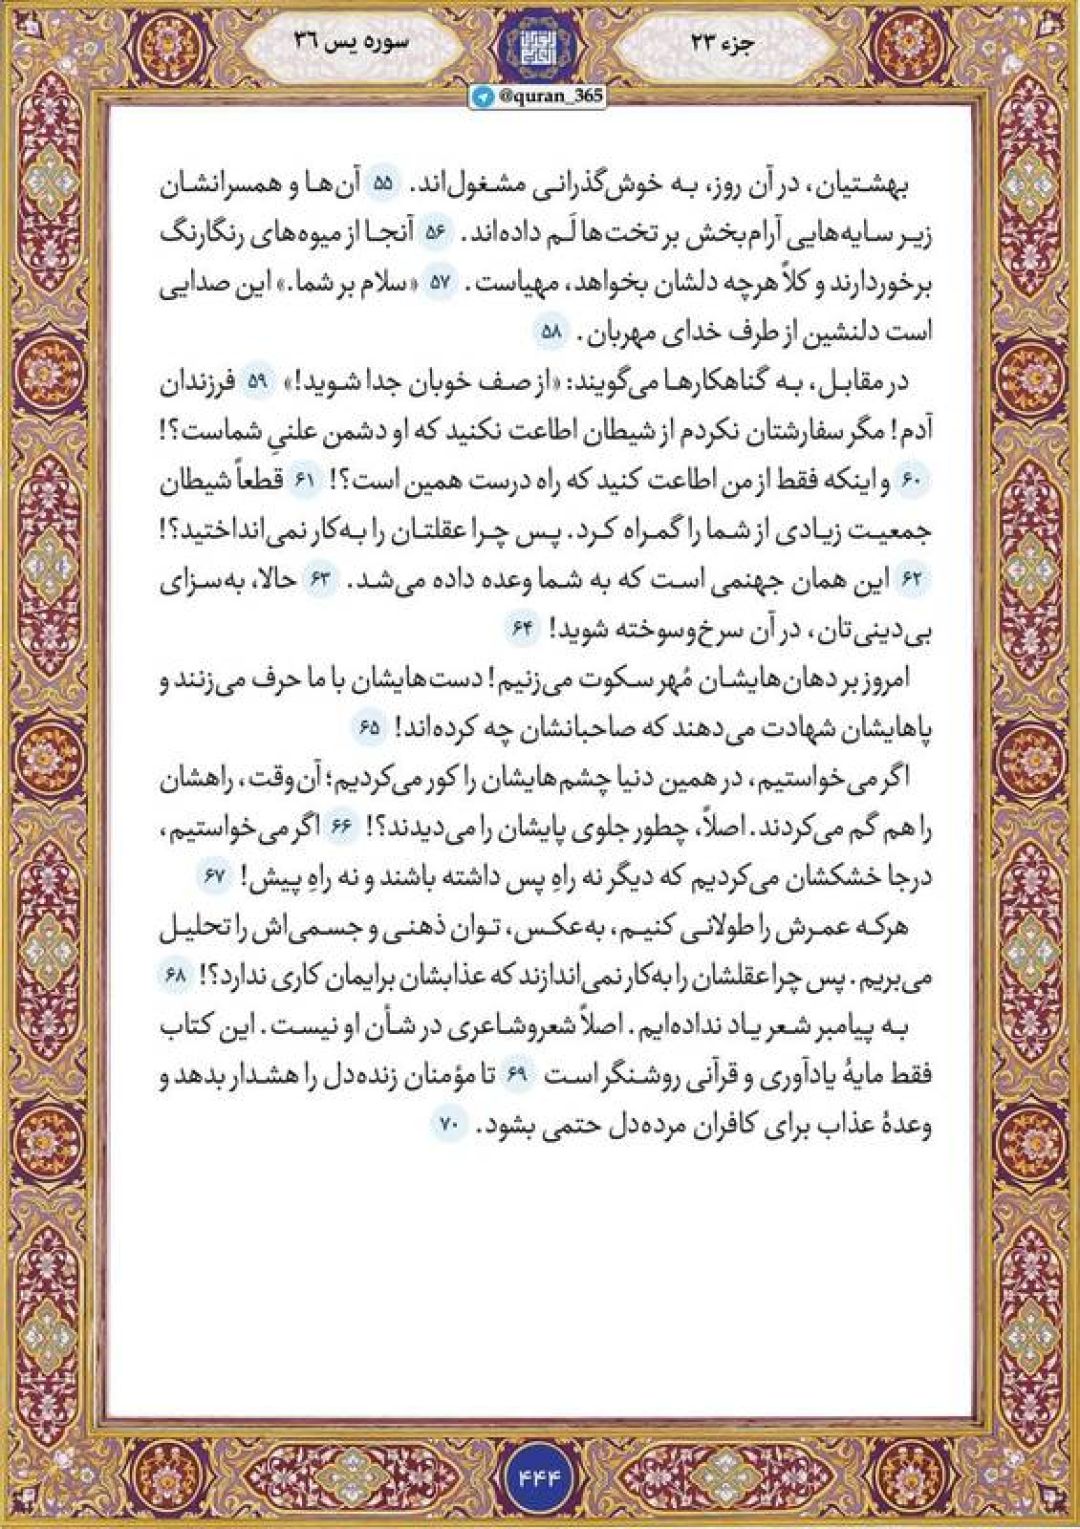 جزء ۲۳
سوره یس ۳۶
@quran_365
بهشتیان، در آن روز، به خوش‌گذرانی مشغول‌اند. ۵۵ آن‌ها و همسرانشان
زیر سایه‌هایی آرام‌بخش بر تخت‌ها لَم داده‌اند. ۵۶ آنجا از میوه‌های رنگارنگ
برخوردارند و کلاً هرچه دلشان بخواهد، مهیاست. ۵۷ «سلام بر شما.» این صدایی
است دلنشین از طرف خدای مهربان. ۵۸
در مقابل، به گناهکارها می‌گویند: «از صف خوبان جدا شوید!» ۵۹ فرزندان
آدم! مگر سفارشتان نکردم از شیطان اطاعت نکنید که او دشمن علنیِ شماست؟!
۶۰ و اینکه فقط از من اطاعت کنید که راه درست همین است؟! ۶۱ قطعاً شیطان
جمعیت زیادی از شما را گمراه کرد. پس چرا عقلتان را به‌کار نمی‌انداختید؟!
۶۲ این همان جهنمی است که به شما وعده داده می‌شد. ۶۳ حالا، به‌سزای
بی‌دینی‌تان، در آن سرخ‌وسوخته شوید! ۶۴
امروز بر دهان‌هایشان مُهر سکوت می‌زنیم! دست‌هایشان با ما حرف می‌زنند و
پاهایشان شهادت می‌دهند که صاحبانشان چه کرده‌اند! ۶۵
اگر می‌خواستیم، در همین دنیا چشم‌هایشان را کور می‌کردیم؛ آن‌وقت، راهشان
را هم گم می‌کردند. اصلاً، چطور جلوی پایشان را می‌دیدند؟! ۶۶ اگر می‌خواستیم،
درجا خشکشان می‌کردیم که دیگر نه راهِ پس داشته باشند و نه راهِ پیش! ۶۷
هرکه عمرش را طولانی کنیم، به‌عکس، توان ذهنی و جسمی‌اش را تحلیل
می‌بریم. پس چرا عقلشان را به‌کار نمی‌اندازند که عذابشان برایمان کاری ندارد؟! ۶۸
به پیامبر شعر یاد نداده‌ایم. اصلاً شعروشاعری در شأن او نیست. این کتاب
فقط مایهٔ یادآوری و قرآنی روشنگر است ۶۹ تا مؤمنان زنده‌دل را هشدار بدهد و
وعدهٔ عذاب برای کافران مرده‌دل حتمی بشود. ۷۰
۴۴۴